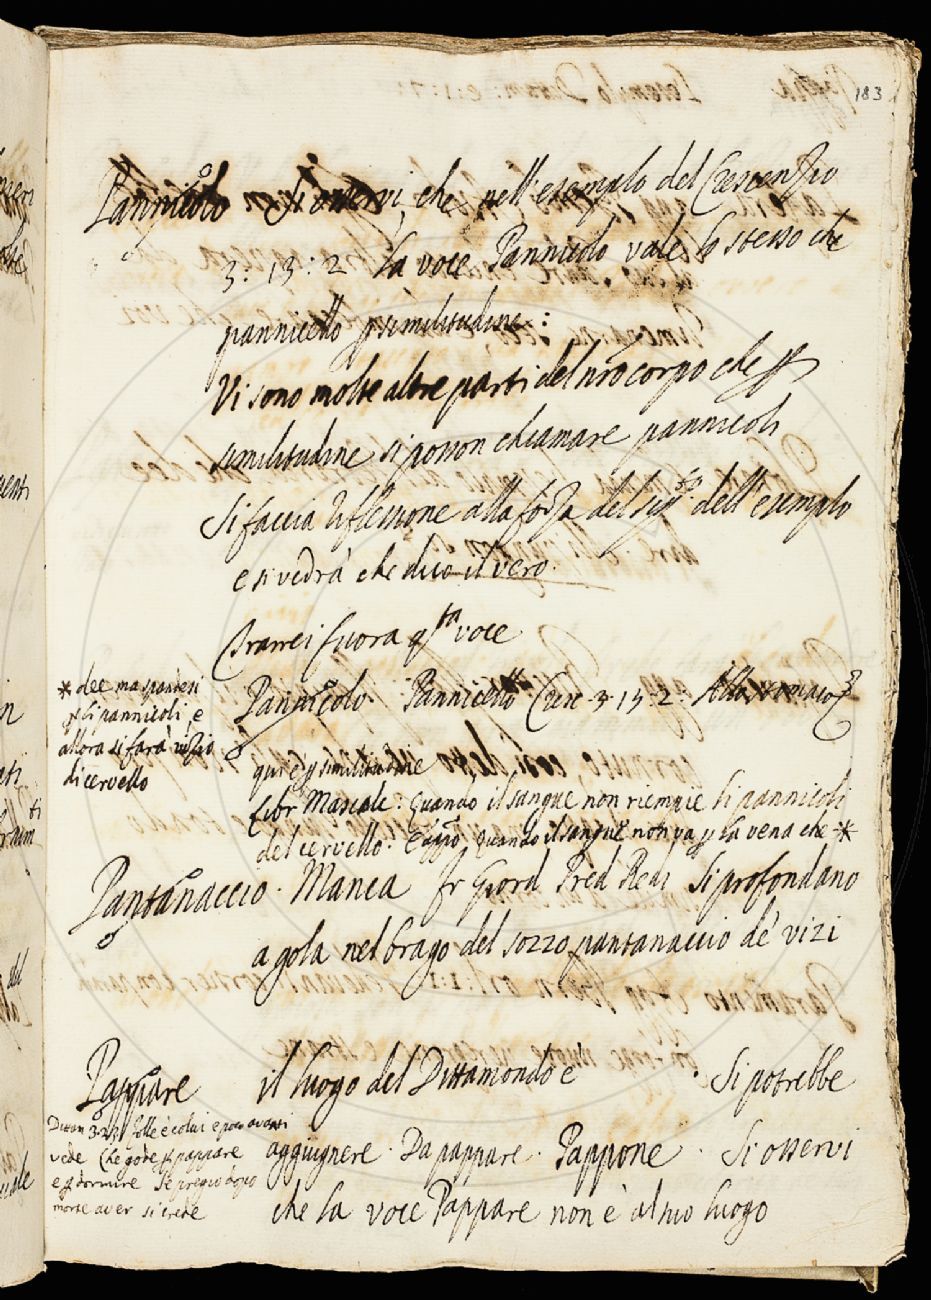 183
Pannicolo Si osservi che nell'esempio del Crescenzio
3: 13: 2 la voce Pannicolo vale lo stesso che
pannicello p similitudine :
Vi sono molte altre parti del nro corpo che p
similitudine si posson chiamare pannicoli
Si faccia riflessione alla forza del dell'esempio
e si vedrà che dico il vero.
Trarrei fuora qsta voce
Pannicolo. Pannicello Cresc 3 13 2.
qui è p similitudine
Libr Mascalc: Quando il sangue non riempie li pannicoli
del cervello. E appo Quando il sangue non va p la vena che *
* dee ma spandesi
p li pannicoli, e
allora si farà vizio
di cervello
Pantanaccio. Manca Fr Giord Pred Red. Si profondano
a gola nel brago del sozzo pantanaccio de' vizi
Pappare il luogo del Dittamondo è . Si potrebbe
aggiugnere. Da pappare. Pappone. Si osservi
che la voce Pappare non è al suo luogo
Dittam 3 23 folle è colui e poco avanti
vede Che gode p pappare
e p dormire Se pregio dopo
morte aver si crede